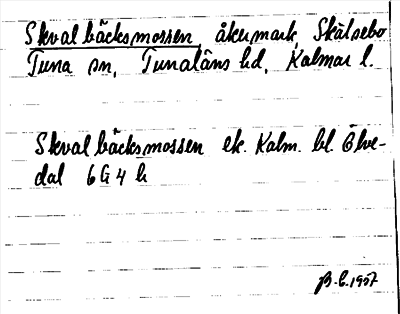 Skvalbäcksmossen åkermark, Skälsebo
Tuna sn, Tunaläns hd, Kalmar l.
Skvalbäcksmossen ek. Kalm. bl. Ölve-
dal 6G4h
1957